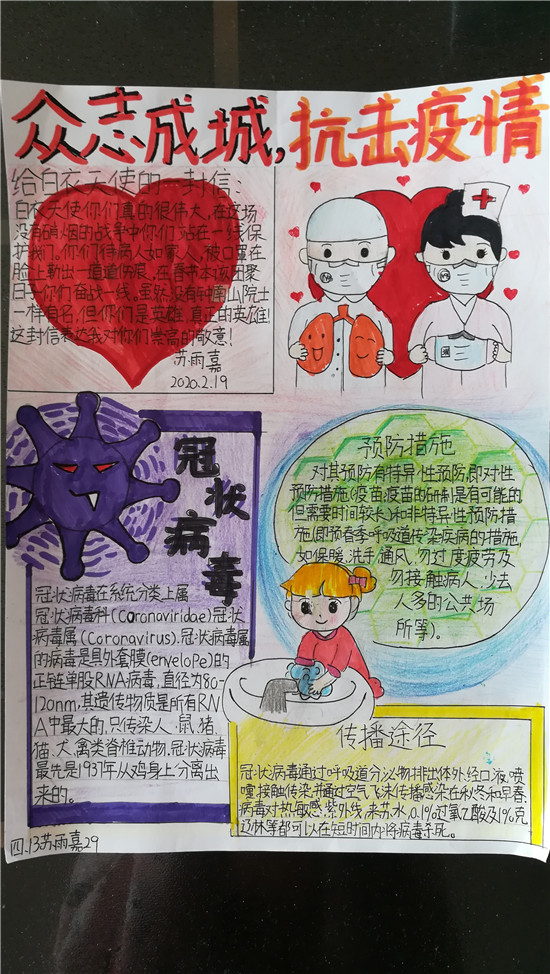 众志成城,抗击疫情
给白衣天使的一封信:
白衣天使你们真的很伟大,在这场
没有硝烟的战争中你们站在一线保
护我们。你们待病人如家人,被口罩在
脸上勒出一道道伤痕,在春节本该团聚
日子你们奋战一线。虽然没有钟南山院士
一样有名,但你们是英雄,真正的英雄!
这封信表达我对你们崇高的敬意!
苏雨嘉
2020.2.19
冠状病毒
冠状病毒在系统分类上属
冠状病毒科(Coronaviridae)冠状
病毒属(Coronavirus).冠状病毒属
的病毒是具外套膜(envelope)的
正链单股RNA病毒,直径为80-
120nm,其遗传物质是所有RN
A中最大的,只传染人、鼠、猪、
猫、犬、禽类脊椎动物,冠状病毒
最先是1937年从鸡身上分离出
来的。
预防措施
对其预防有特异性预防,即对性
预防措施(疫苗,疫苗的研制是有可能的
但需要时间较长)和非特异性预防措
施(即预春季呼吸道传染疾病的措施,
如保暖、洗手、通风、勿过度疲劳及
勿接触病人,少去
人多的公共场
所等)。
传播途径
冠状病毒通过呼吸道分泌物排出体外,经口液、喷
嚏、接触传染,并通过空气飞沫传播,感染在秋冬和早春.
病毒对热敏感,紫外线、来苏水,0.1%过氧乙酸及1%克
辽林等都可以在短时间内将病毒杀死。
四.13苏雨嘉29